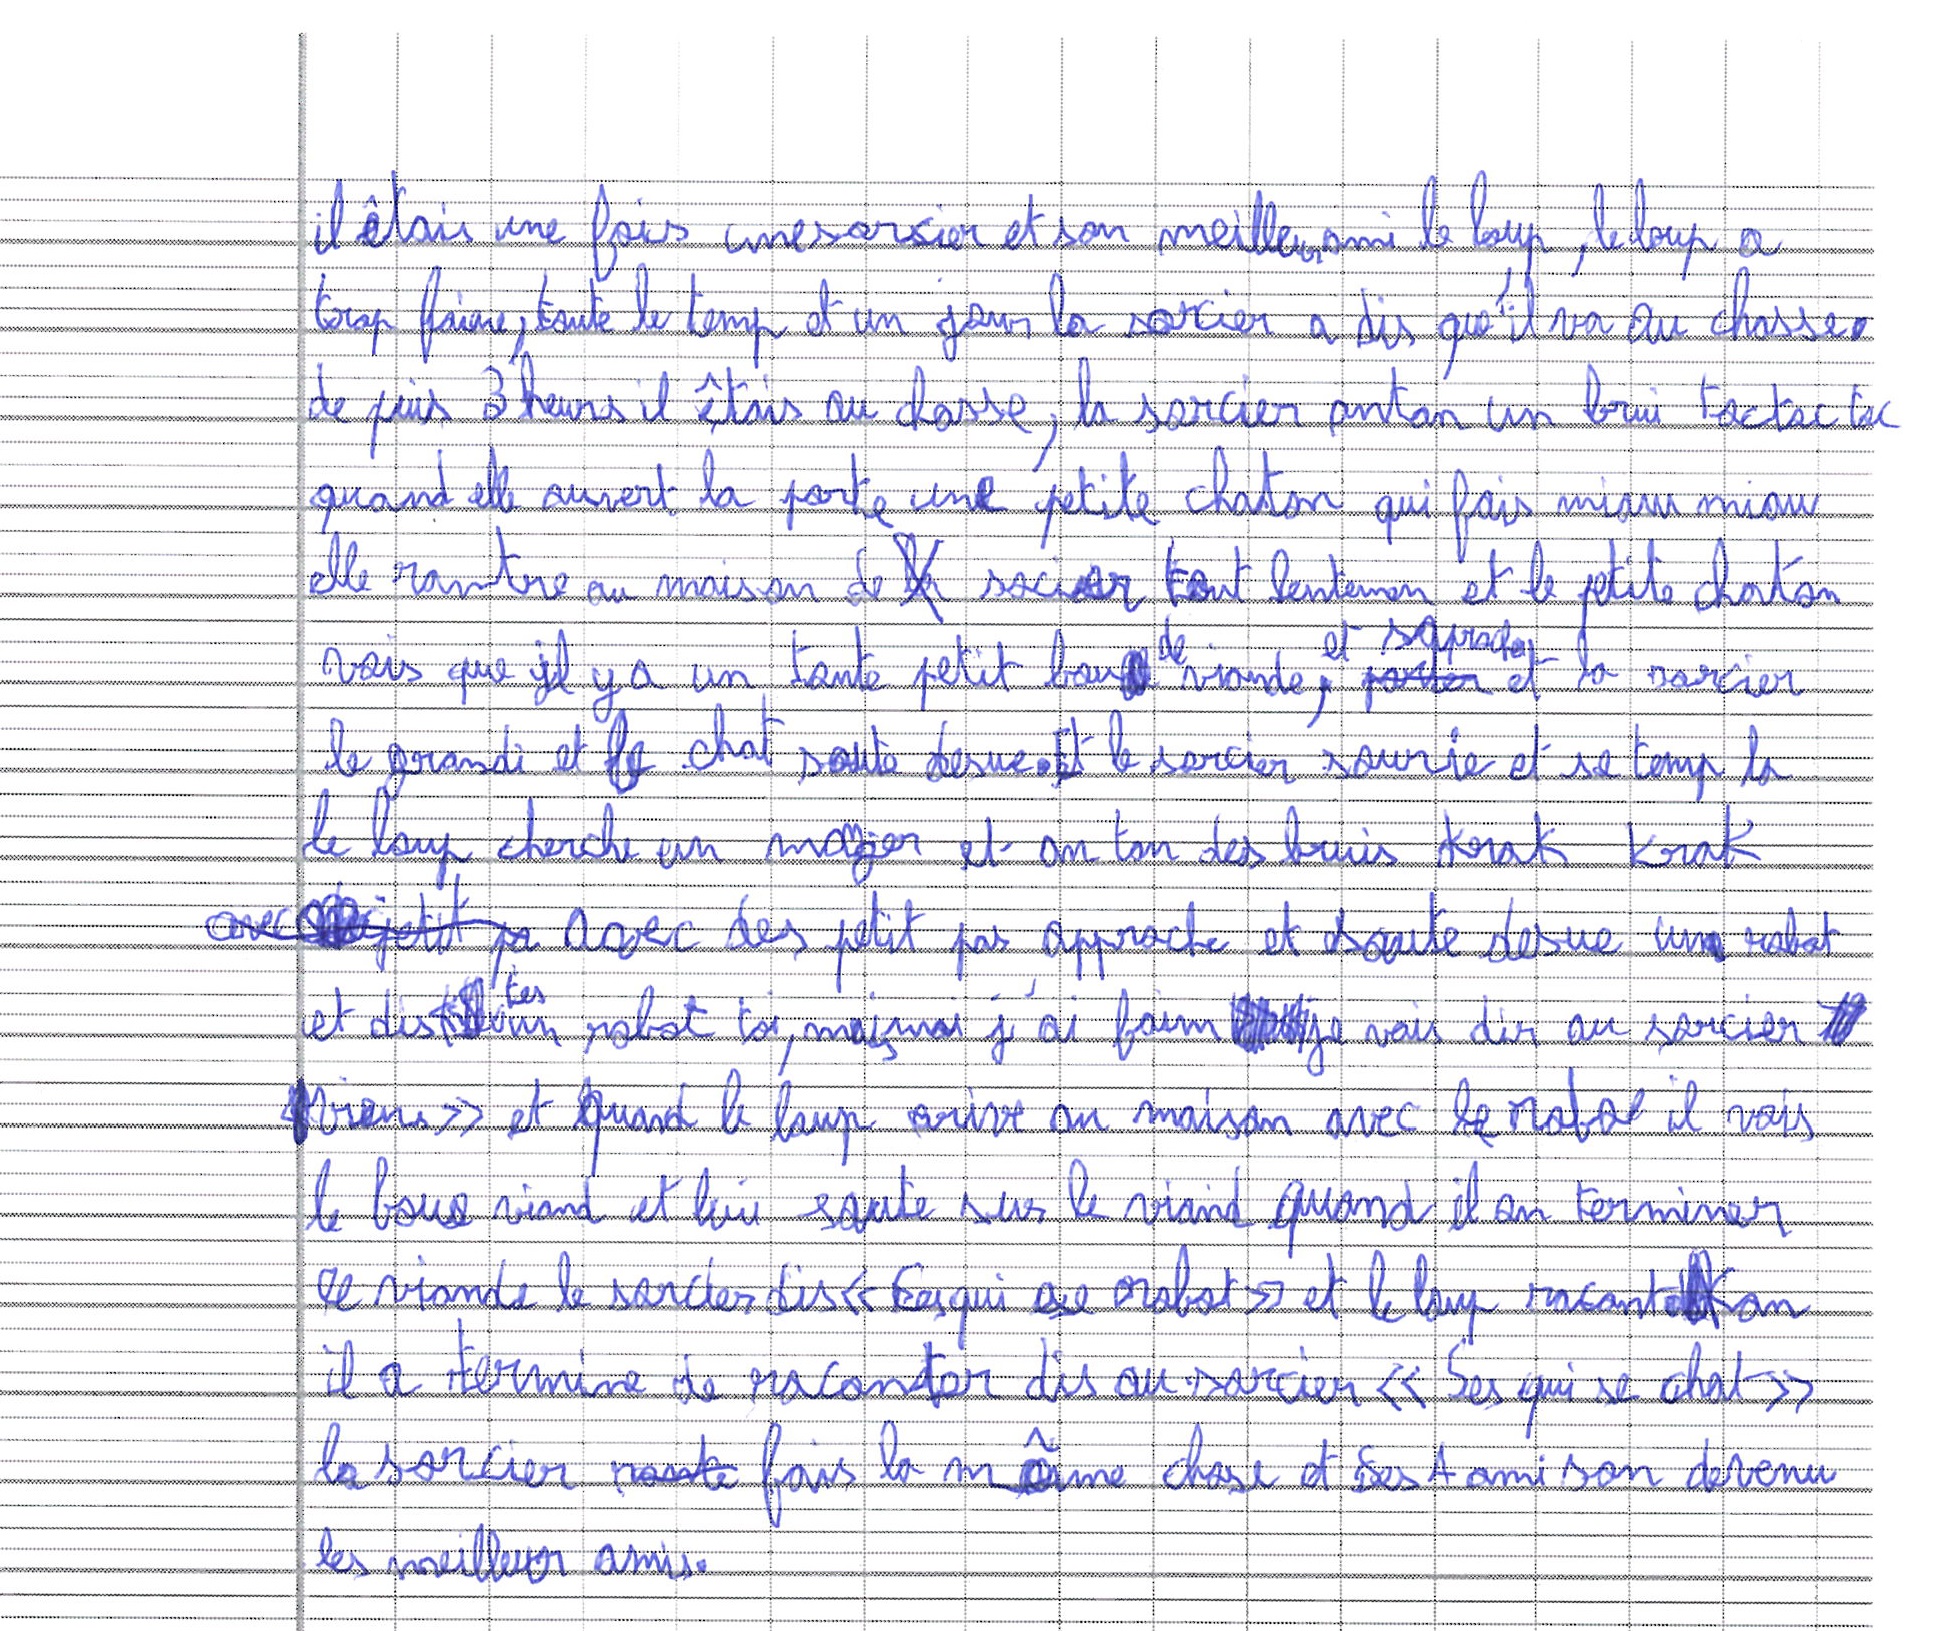 il êtais une fois une sorcier et son meilleur ami le loup, le loup a
trop faime, toute le temp et un jour la sorcier a dis que'il va au chasse.
de puis 3 heurs il êtais au chasse, la sorcier antan un brui tactactac
quand elle ouvert la porte une petite chaton qui fais miaou miaou
elle rantre au maison de socier tout lentemen et le petite chaton
vais que il y a un tante petit bou de viande, et saprocher et la sorcier
le grandi et le chat saute desue. Et le sorcier sourie et se temp la
le loup cherche un majer et an tan des bruis krak krak
avec des petit pas approche et saute desue un robot
et dis tes un robot toi, mais moi j'ai faim je vais dir au sorcier
viens >> et quand le loup arive au maison avec le robot il vais
le boue viand et lui saute sur le viand quand il an terminer
le viande le sorcier dis << Ses qui se robot >> et le loup racant kan
il a termine de raconter dis au sorcier << Ses qui se chat >>
la sorcier fais la mâme chose et ses 4 ami son devenu
les meilleur amis.